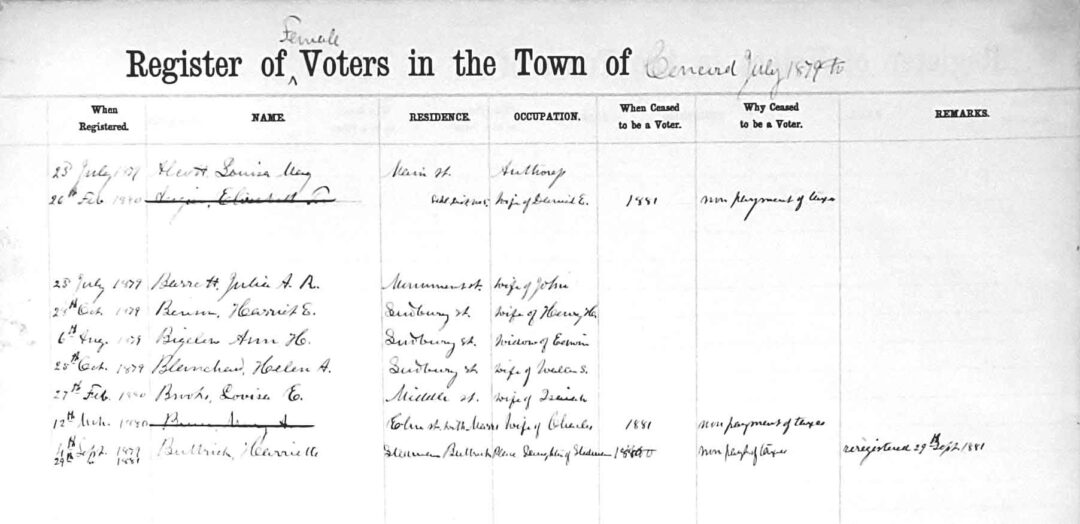 Female
Register of Voters in the Town of Concord July 1879 to
When Registered. NAME. RESIDENCE. OCCUPATION. When Ceased to be a Voter. Why Ceased to be a Voter. REMARKS.
23 July 1879 Alcott Louisa May Main st. Authoress
26th Feb 1880 Elizabeth Wife of Daniel E. 1881 non payment of taxes
23 July 1879 Barrett, Julia A. R. Monument st. Wife of John
28th Oct. 1879 Harriet E. Sudbury st. Wife of Henry H.
6th Aug. 1879 Bigelow Ann H. Sudbury st. Widow of Edwin
28th Oct. 1879 Blanchard, Helen A. Sudbury st. Wife of
27th Feb. 1880 Brooks, Lovisa E. Middle st. Wife of Isaiah
12th Mch. 1880 Mary A. st. with Wife of Charles 1881 non payment of taxes
4th Sept. 1879 Buttrick, Harriette Stedman Buttrick Place Daughter of Stedman 1880 non payt of taxes reregistered 29th Sept 1881
29th 1881